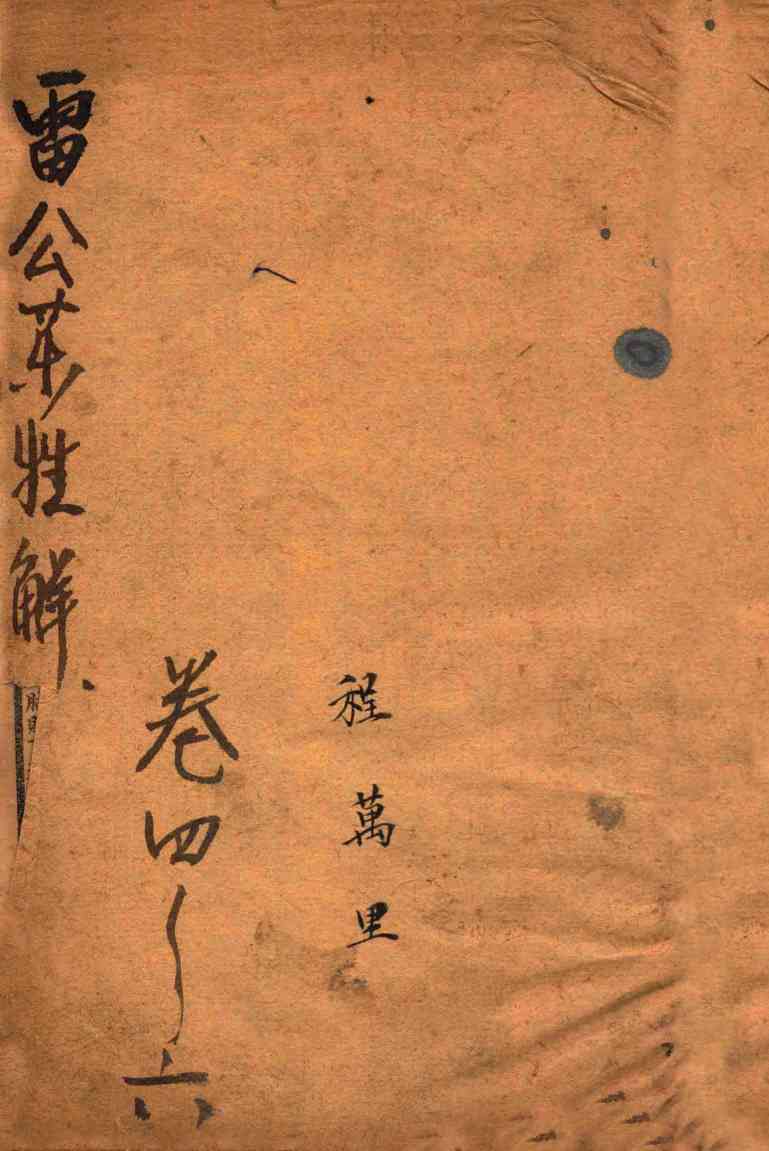 程萬里
卷四～六
雷公藥性解